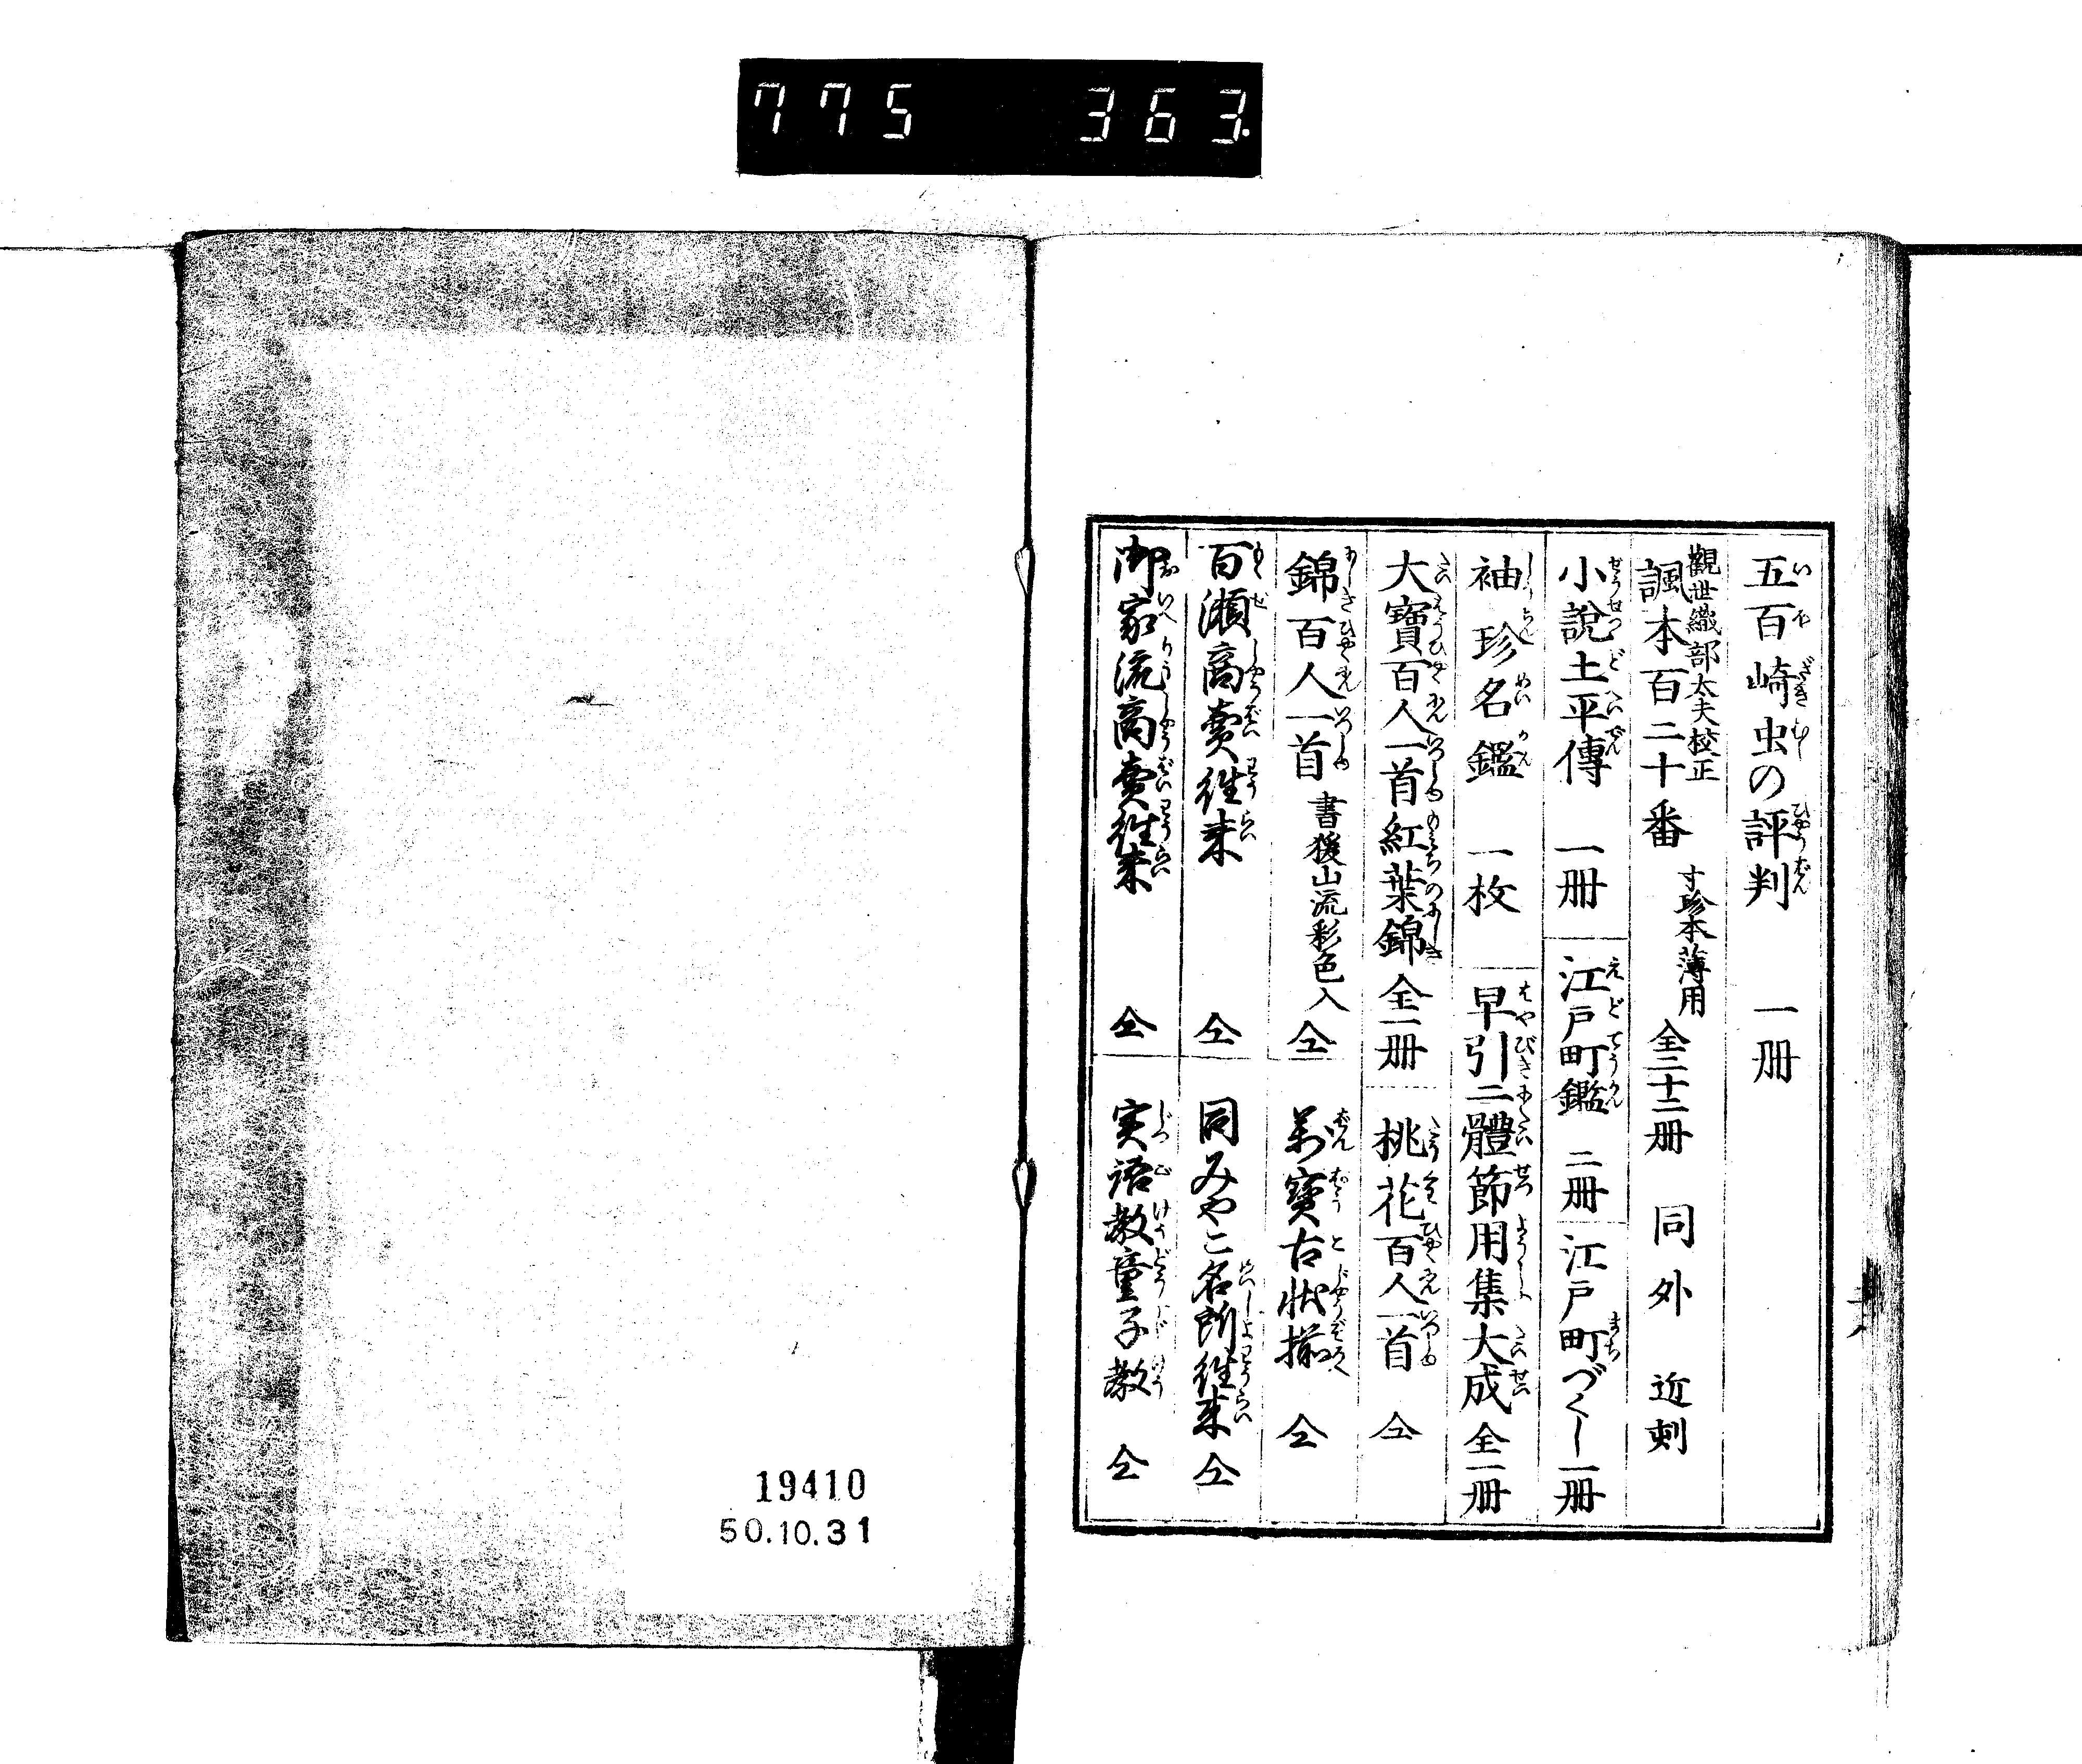 775 363.
五百崎虫の評判 一册
觀世織部太夫校正
諷本百二十番 寸珍本薄用 全二十二册 同外 近刻
小說土平傳 一册 江戸町鑑 二册 江戸町づくし 一册
袖珍名鑑 一枚 早引二體節用集大成 全一册
大寶百人一首紅葉錦 全一册 桃花百人一首 仝
錦百人一首 書後山流彩色入 仝 萬寶古状揃 仝
百瀬商賣徃来 仝 同みやこ名所徃来 仝
御家流商賣徃来 仝 実語教童子教 仝
19410
50.10.31